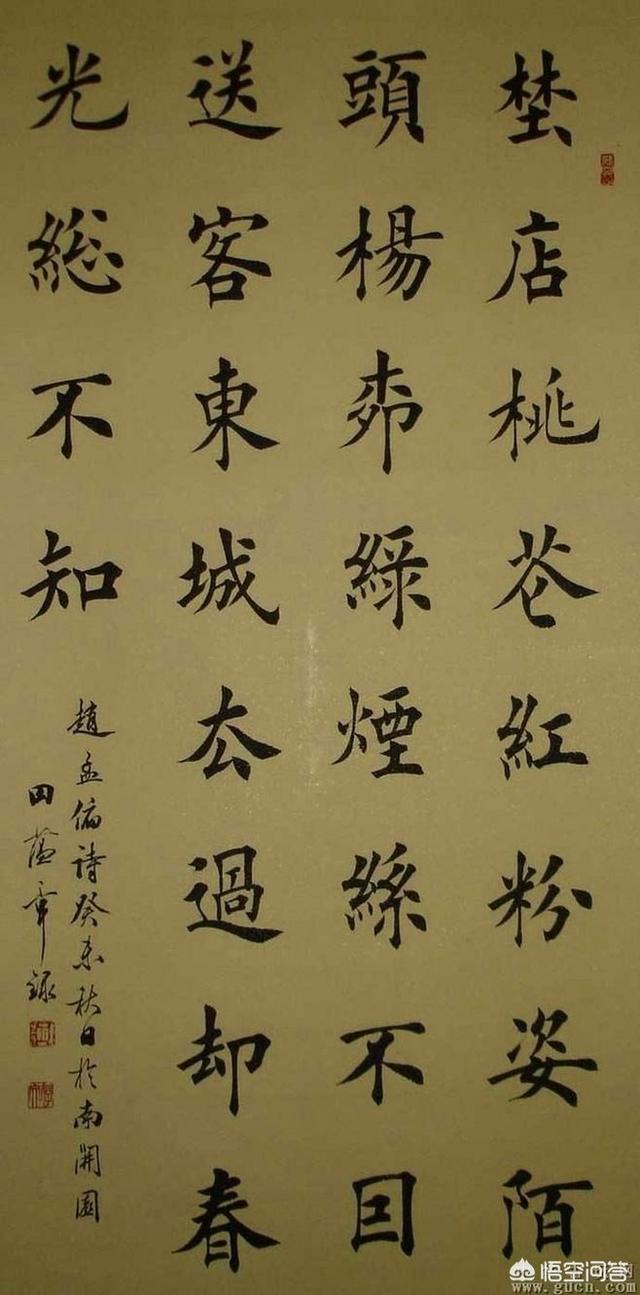 埜店桃花紅粉姿陌
頭楊柳緑煙絲不因
送客東城去過却春
光総不知
趙孟俯詩癸未秋日於南開園
田蘊章錄
悟空问答
www.gucn.com